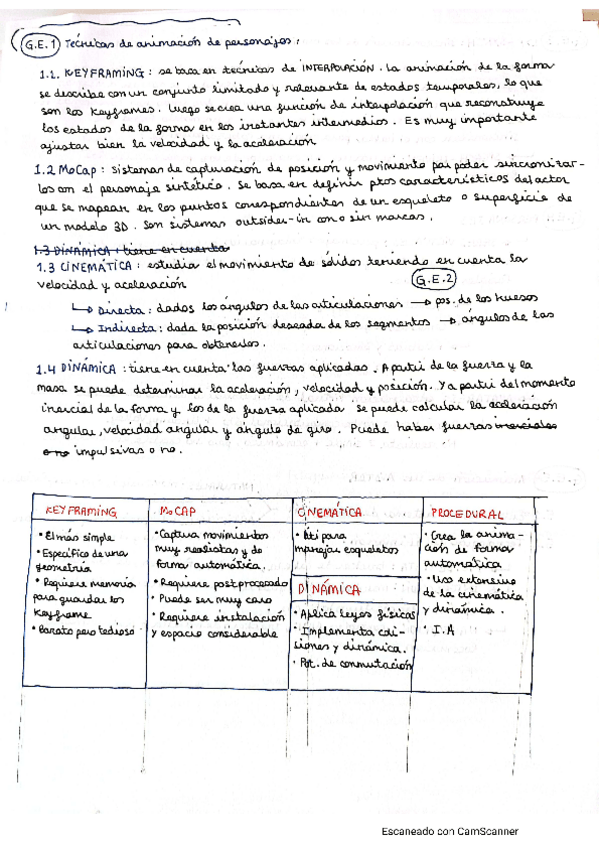 G.E.1 Técnicas de animación de personajes:
1.1. KEYFRAMING: se basa en técnicas de INTERPOLACIÓN. La animación de la forma
se describe con un conjunto limitado y relevante de estados temporales, lo que
son los Keyframes. Luego se crea una función de interpolación que reconstruye
los estados de la forma en los instantes intermedios. Es muy importante
ajustar bien la velocidad y la aceleración
1.2 MoCap: sistemas de capturación de posición y movimiento para poder sincronizar-
los con el personaje sintético. Se basa en definir ptos característicos del actor
que se mapean en los puntos correspondientes de un esqueleto o superficie de
un modelo 3D. Son sistemas outsider-in con o sin marcas.
1.3 DINÁMICA: tiene en cuenta
1.3 CINEMÁTICA: estudia el movimiento de sólidos teniendo en cuenta la
velocidad y aceleración
G.E.2
↳ Directa: dados los ángulos de las articulaciones → pos. de los huesos
↳ Indirecta: dada la posición deseada de los segmentos → ángulos de las
articulaciones para obtenerlos.
1.4 DINÁMICA: tiene en cuenta las fuerzas aplicadas. A partir de la fuerza y la
masa se puede determinar la aceleración, velocidad y posición. Y a partir del momento
inercial de la forma y los de la fuerza aplicada se puede calcular la aceleración
angular, velocidad angular y ángulo de giro. Puede haber fuerzas inerciales
o no impulsivas o no.
KEYFRAMING
• El más simple
• Específico de una
geometría
• Requiere memoria
para guardar los
Keyframe
• Barato pero tedioso
MoCAP
• Captura movimientos
muy realistas y de
forma automática.
• Requiere postprocesado
• Puede ser muy caro
• Requiere instalación
y espacio considerable
CINEMÁTICA
• Útil para
manejar esqueletos
DINÁMICA
• Aplica leyes físicas
• Implementa coli-
siones y dinámica.
• Pot. de conmutación
PROCEDURAL
• Crea la anima-
ción de forma
automática
• Uso extensivo
de la cinemática
y dinámica.
• I.A
Escaneado con CamScanner